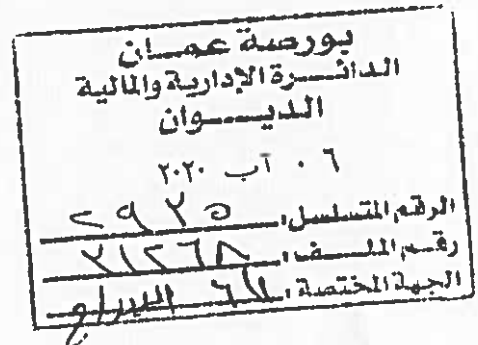 بورصة عمان
الدائرة الإدارية والمالية
الديوان
٠٦ آب ٢٠٢٠
الرقم المتسلسل: ٢٩٢٥
رقم الملف: ٢١٢٦٨
الجهة المختصة: